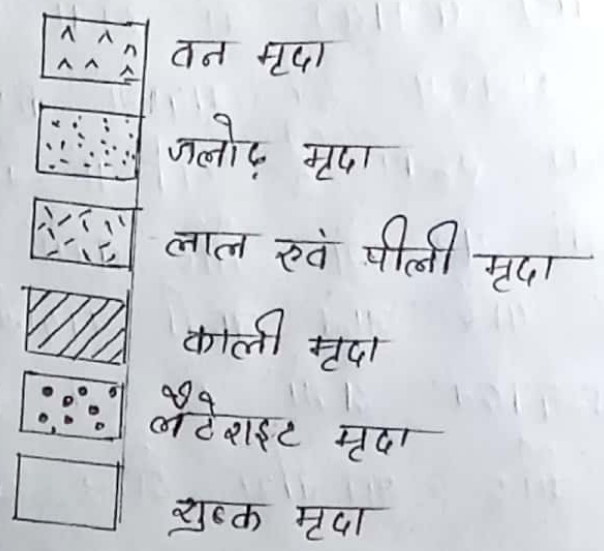 वन मृदा
जलोढ़ मृदा
लाल एवं पीली मृदा
काली मृदा
लैटेराइट मृदा
शुष्क मृदा